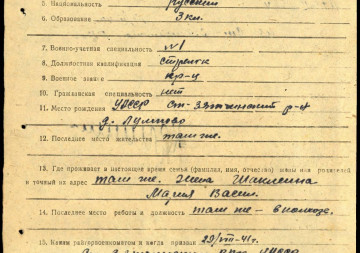 5. Национальность русский
6. Образование 3 кл.
7. Военно-учетная специальность №1
8. Должностная квалификация стрелок
9. Военное звание кр-ц
10. Гражданская специальность нет
11. Место рождения УАССР р-н
д.
12. Последнее место жительства там же.
13. Где проживает в настоящее время семья (фамилия, имя, отчество) жены или родителей
и точный их адрес там же. Жена
Мария Васил.
14. Последнее место работы и должность там же – в колхозе.
15. Каким райгорвоенкоматом и когда призван 29/VIII-41г.